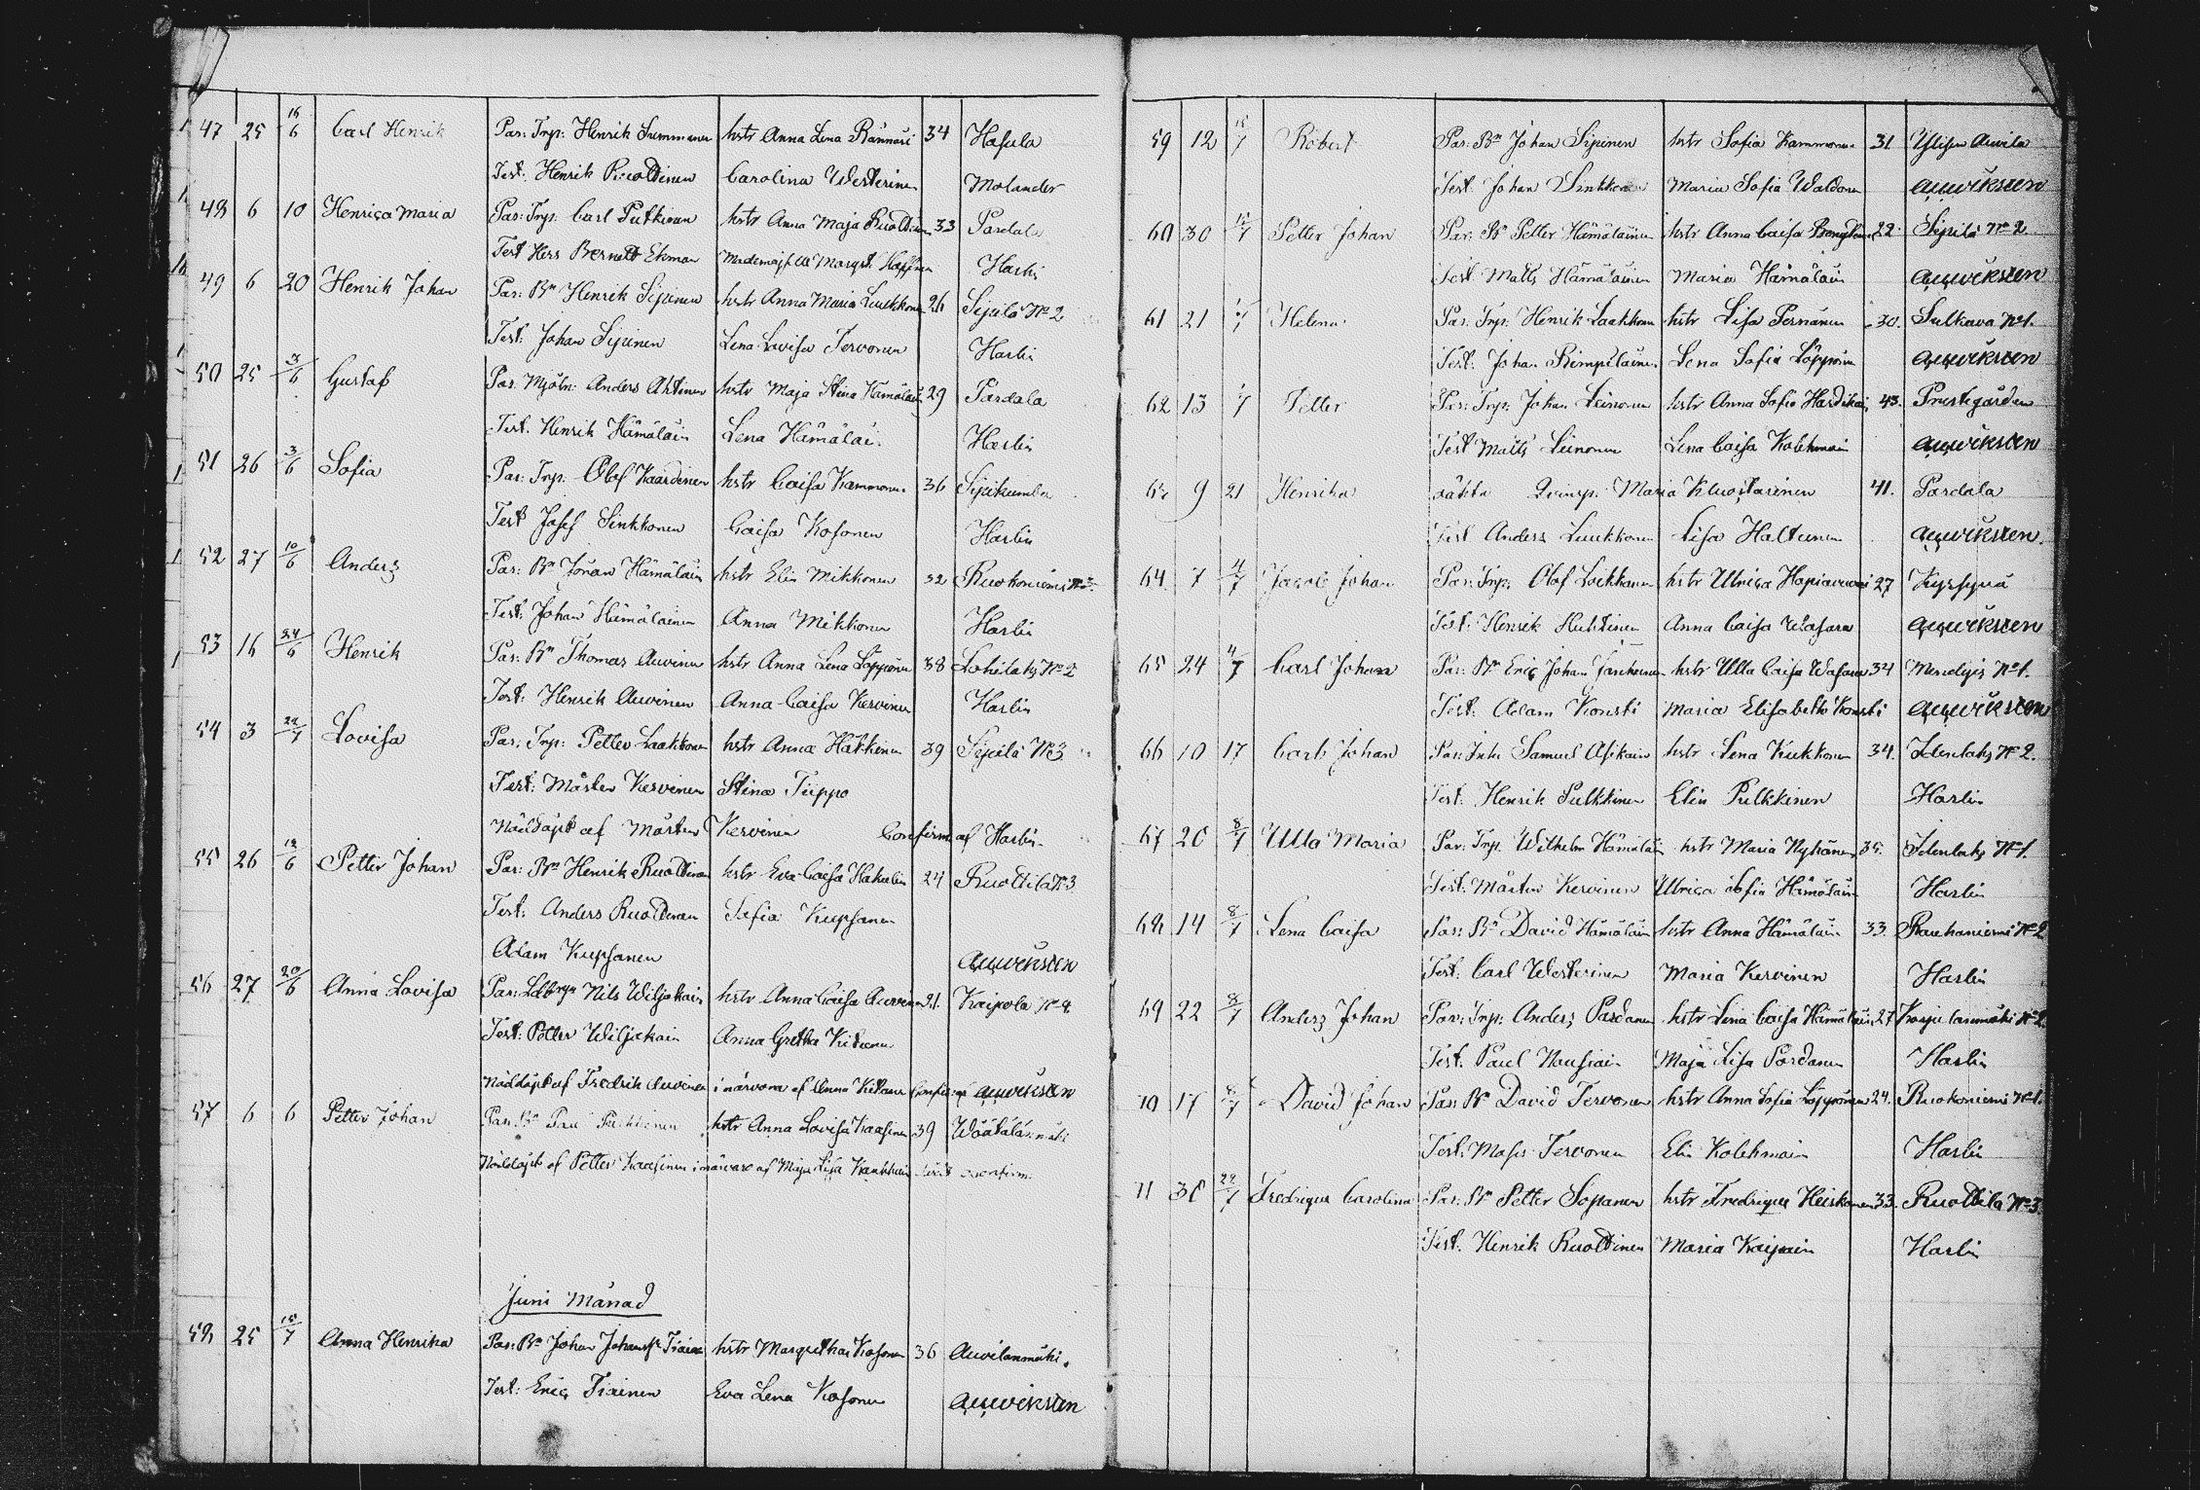 47 25 16/6 Carl Henrik Par: Trp: Henrik Summanen hstr Anna Lena Rännäri 34 Hasula
Test: Henrik Ruottinen Carolina Westerinen Molander
48 6 10 Henrica Maria Par: Trp: Carl Putkinen hstr Anna Maja Ruottinen 33 Pardala
Test Herr Bernett Ekman Hasli
49 6 20 Henrik Johan Par: Bn Henrik Sipinen hstr Anna Maria Luukkonen 26 Sipilä No 2
Test: Johan Sipinen Lena Lovisa Tervonen Harlin
50 25 3/6 Gustaf Par. Mjöln: Anders Ahtinen hstr Maja Stina Hämäläin 29 Pardala
Test. Henrik Hämäläin Lena Hämäläi. Harlin
51 26 3/6 Sofia Par: Trp. Olof Kaardinen hstr Caisa Kammonen 36 Sipikumbu
Test Josef Sinkkonen Caisa Kosonen Harlin
52 27 10/6 Anders Par: Bn Johan Hämäläin hstr Elin Mikkonen 32 Ruokoniemi
Test: Johan Hämäläinen Anna Mikkonen Harlin
53 16 24/6 Henrik Par: Bn Thomas Auvinen hstr Anna Lena Löppönen 38 Lohilaks No 2
Test: Henrik Auvinen Anna Caisa Kervinen Harlin
54 3 22/7 Lovisa Par: Trp: Petter Laakkonen hstr Anna Häkkinen 39 Sipilä No 3
Test: Mårten Kervinen Stina Tiippo
Nöddöpt af Mårten Kervinen Confirm af Harlin
55 26 12/6 Petter Johan Par: Bn Henrik Ruottinen hstr Eva Caisa Hakulin 24 Ruottila No 3
Test: Anders Ruottinen Sofia Kupsanen
Adam Kupsanen Auwiksten
56 27 20/6 Anna Lovisa Par: Nils Wiljakain hstr Anna Caisa Auvinen 21. Kaipola No 4
Test: Petter Wiljakain Anna Gretha Kitunen
Nöddöpt af Fredrik Auvinen i närvaro af Anna Kitunen Confirm af Auwiksten
57 6 6 Petter Johan Par: Bn hstr Anna Lovisa Kaasinen 39 Wäätälänmäki
Nöddöpt af Petter Kaasinen i närvaro af Maja Lisa confirm
Juni Månad
58 25 15/7 Anna Henrika Par: Bn Johan Johansson Tiainen hstr Margretha Kosonen 36 Auvilanmäki.
Test: Eric Tiainen Eva Lena Kosonen Auwiksten
59 12 15/7 Robert Par: Bn Johan Sipinen hstr Sofia Kammonen 31 Auvila
Test Johan Sinkkonen Maria Sofia Waldonen Auwiksten
60 30 15/7 Petter Johan Par: Bn Petter Hämäläinen hstr Anna Caisa 22. Sipilä No 2
Test Matts Hämäläinen Maria Hämäläin Auwiksten
61 21 Helena Par: Trp: Henrik Laakkonen hstr Lisa Pernänen 30. Sulkava No 1.
Test: Johan Rimpiläinen Lena Sofia Löppönen Auwiksten
62 13 Petter Par: Trp: Johan Leinonen hstr Anna Sofia 43. Prestgården
Test Matts Leinonen Lena Caisa Kolehmain Auwiksten
63 9 21 Henrika oäkta Qvinsp. Maria Kluostarinen 41. Pardala
Test Anders Luukkonen Lisa Haltunen Auwiksten.
64. 7 4/7 Jacob Johan Par: Trp: Olof Lockkanen hstr Ulrica Hapiavuori 27
Test: Henrik Huhtinen Anna Caisa Wasara Auwiksten
65 24 4/7 Carl Johan Par: Bn Eric Johan hstr Ulla Caisa Wasara 34 No 1.
Test: Adam Konsti Maria Elisabeth Konsti Auwiksten
66 10 17 Carl Johan Par: Inh: Samuel Asikain hstr Lena Kukkonen 34. Idenlaks No 2.
Test: Henrik Pulkkinen Elin Pulkkinen Harlin
67 20 8/7 Ulla Maria Par: Trp. Wilhelm Hämäläin hstr Maria Nykänen 35. Idenlaks No 1.
Test: Mårten Kervinen Ulrica Sofia Hämäläin Harlin
68 14 8/7 Lena Caisa Par: Bn David Hämäläin hstr Anna Hämäläin 33. Rauhaniemi No 2
Test: Carl Westerinen Maria Kervinen Harlin
69 22 8/7 Anders Johan Par: Trp: Anders Pardanen hstr Lena Caisa Hämäläin 27 No 2
Test. Paul Nousiain Maja Lisa Pardanen Harlin
70 17 8/7 David Johan Par: Bn David Tervonen hstr Anna Sofia Löppönen 24. Ruokoniemi No 1.
Test: Moses Tervonen Elin Kolehmain Harlin
71 30 22/7 Fredrique Carolina Par: Bn Petter Sopanen hstr Fredrique Heiskanen 33. Ruottila No 3.
Test: Henrik Ruottinen Maria Kaipain Harlin